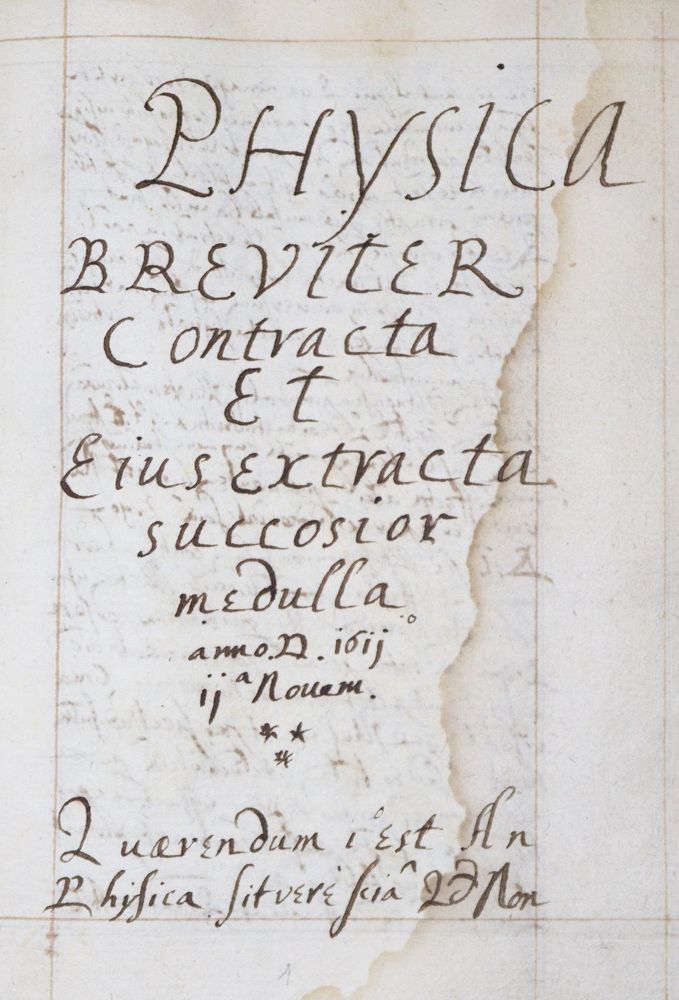 PHYSICA
BREVITER
Contracta
Et
Eius extracta
succosior
medulla
anno. D. 1611
ijª Novem.
Quærendum 1º est An
Physica sit verè sciâ Qd Non